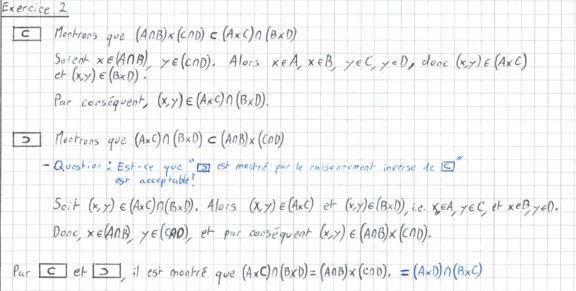 Exercice 2
⊂ Montrons que (A∩B)×(C∩D) ⊂ (A×C)∩(B×D)
Soient x∈(A∩B), y∈(C∩D). Alors x∈A, x∈B, y∈C, y∈D, donc (x,y)∈(A×C)
et (x,y)∈(B×D).
Par conséquent, (x,y)∈(A×C)∩(B×D).
⊃ Montrons que (A×C)∩(B×D) ⊂ (A∩B)×(C∩D)
- Question : Est-ce que "⊃ est montré par le raisonnement inverse de ⊂"
est acceptable?
Soit (x,y)∈(A×C)∩(B×D). Alors (x,y)∈(A×C) et (x,y)∈(B×D), i.e. x∈A, y∈C, et x∈B, y∈D.
Donc, x∈(A∩B), y∈(C∩D), et par conséquent (x,y)∈(A∩B)×(C∩D).
Par ⊂ et ⊃, il est montré que (A×C)∩(B×D)=(A∩B)×(C∩D). =(A×D)∩(B×C)